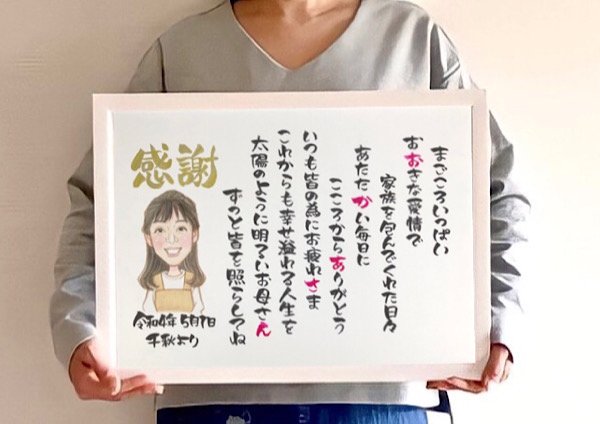 まごころいっぱい
おおきな愛情で
家族を包んでくれた日々
あたたかい毎日に
こころからありがとう
いつも皆の為にお疲れさま
これからも幸せ溢れる人生を
太陽のように明るいお母さん
ずっと皆を照らしてね
感謝
令和4年
千秋より